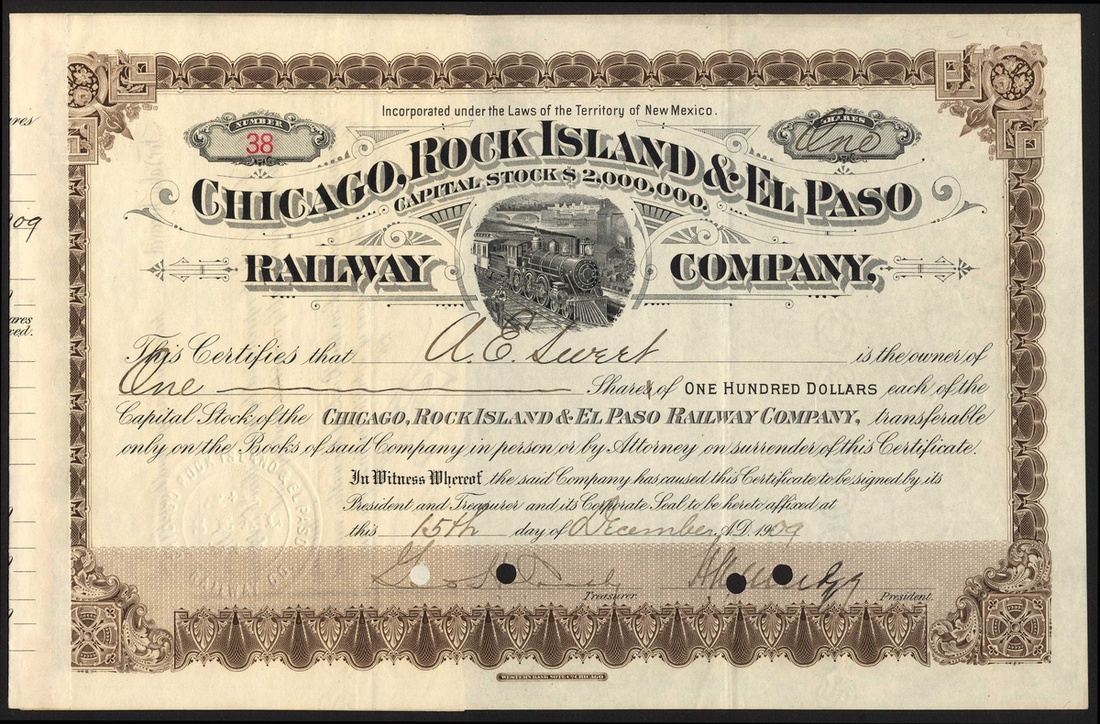 Incorporated under the Laws of the Territory of New Mexico.
NUMBER
38
SHARES
One
CHICAGO, ROCK ISLAND & EL PASO
CAPITAL STOCK $2,000,000.
RAILWAY COMPANY,
This Certifies that A. E. Sweet is the owner of
One Shares of ONE HUNDRED DOLLARS each of the
Capital Stock of the CHICAGO, ROCK ISLAND & EL PASO RAILWAY COMPANY, transferable
only on the Books of said Company in person or by Attorney on surrender of this Certificate.
In Witness Whereof the said Company has caused this Certificate to be signed by its
President and Treasurer and its Corporate Seal to be hereto affixed at
this 15th day of December A.D. 1909
Treasurer. President.
WESTERN BANK NOTE CO. CHICAGO
ares
09
ares
ROCK ISLAND & EL PASO
RAILWAY CO.